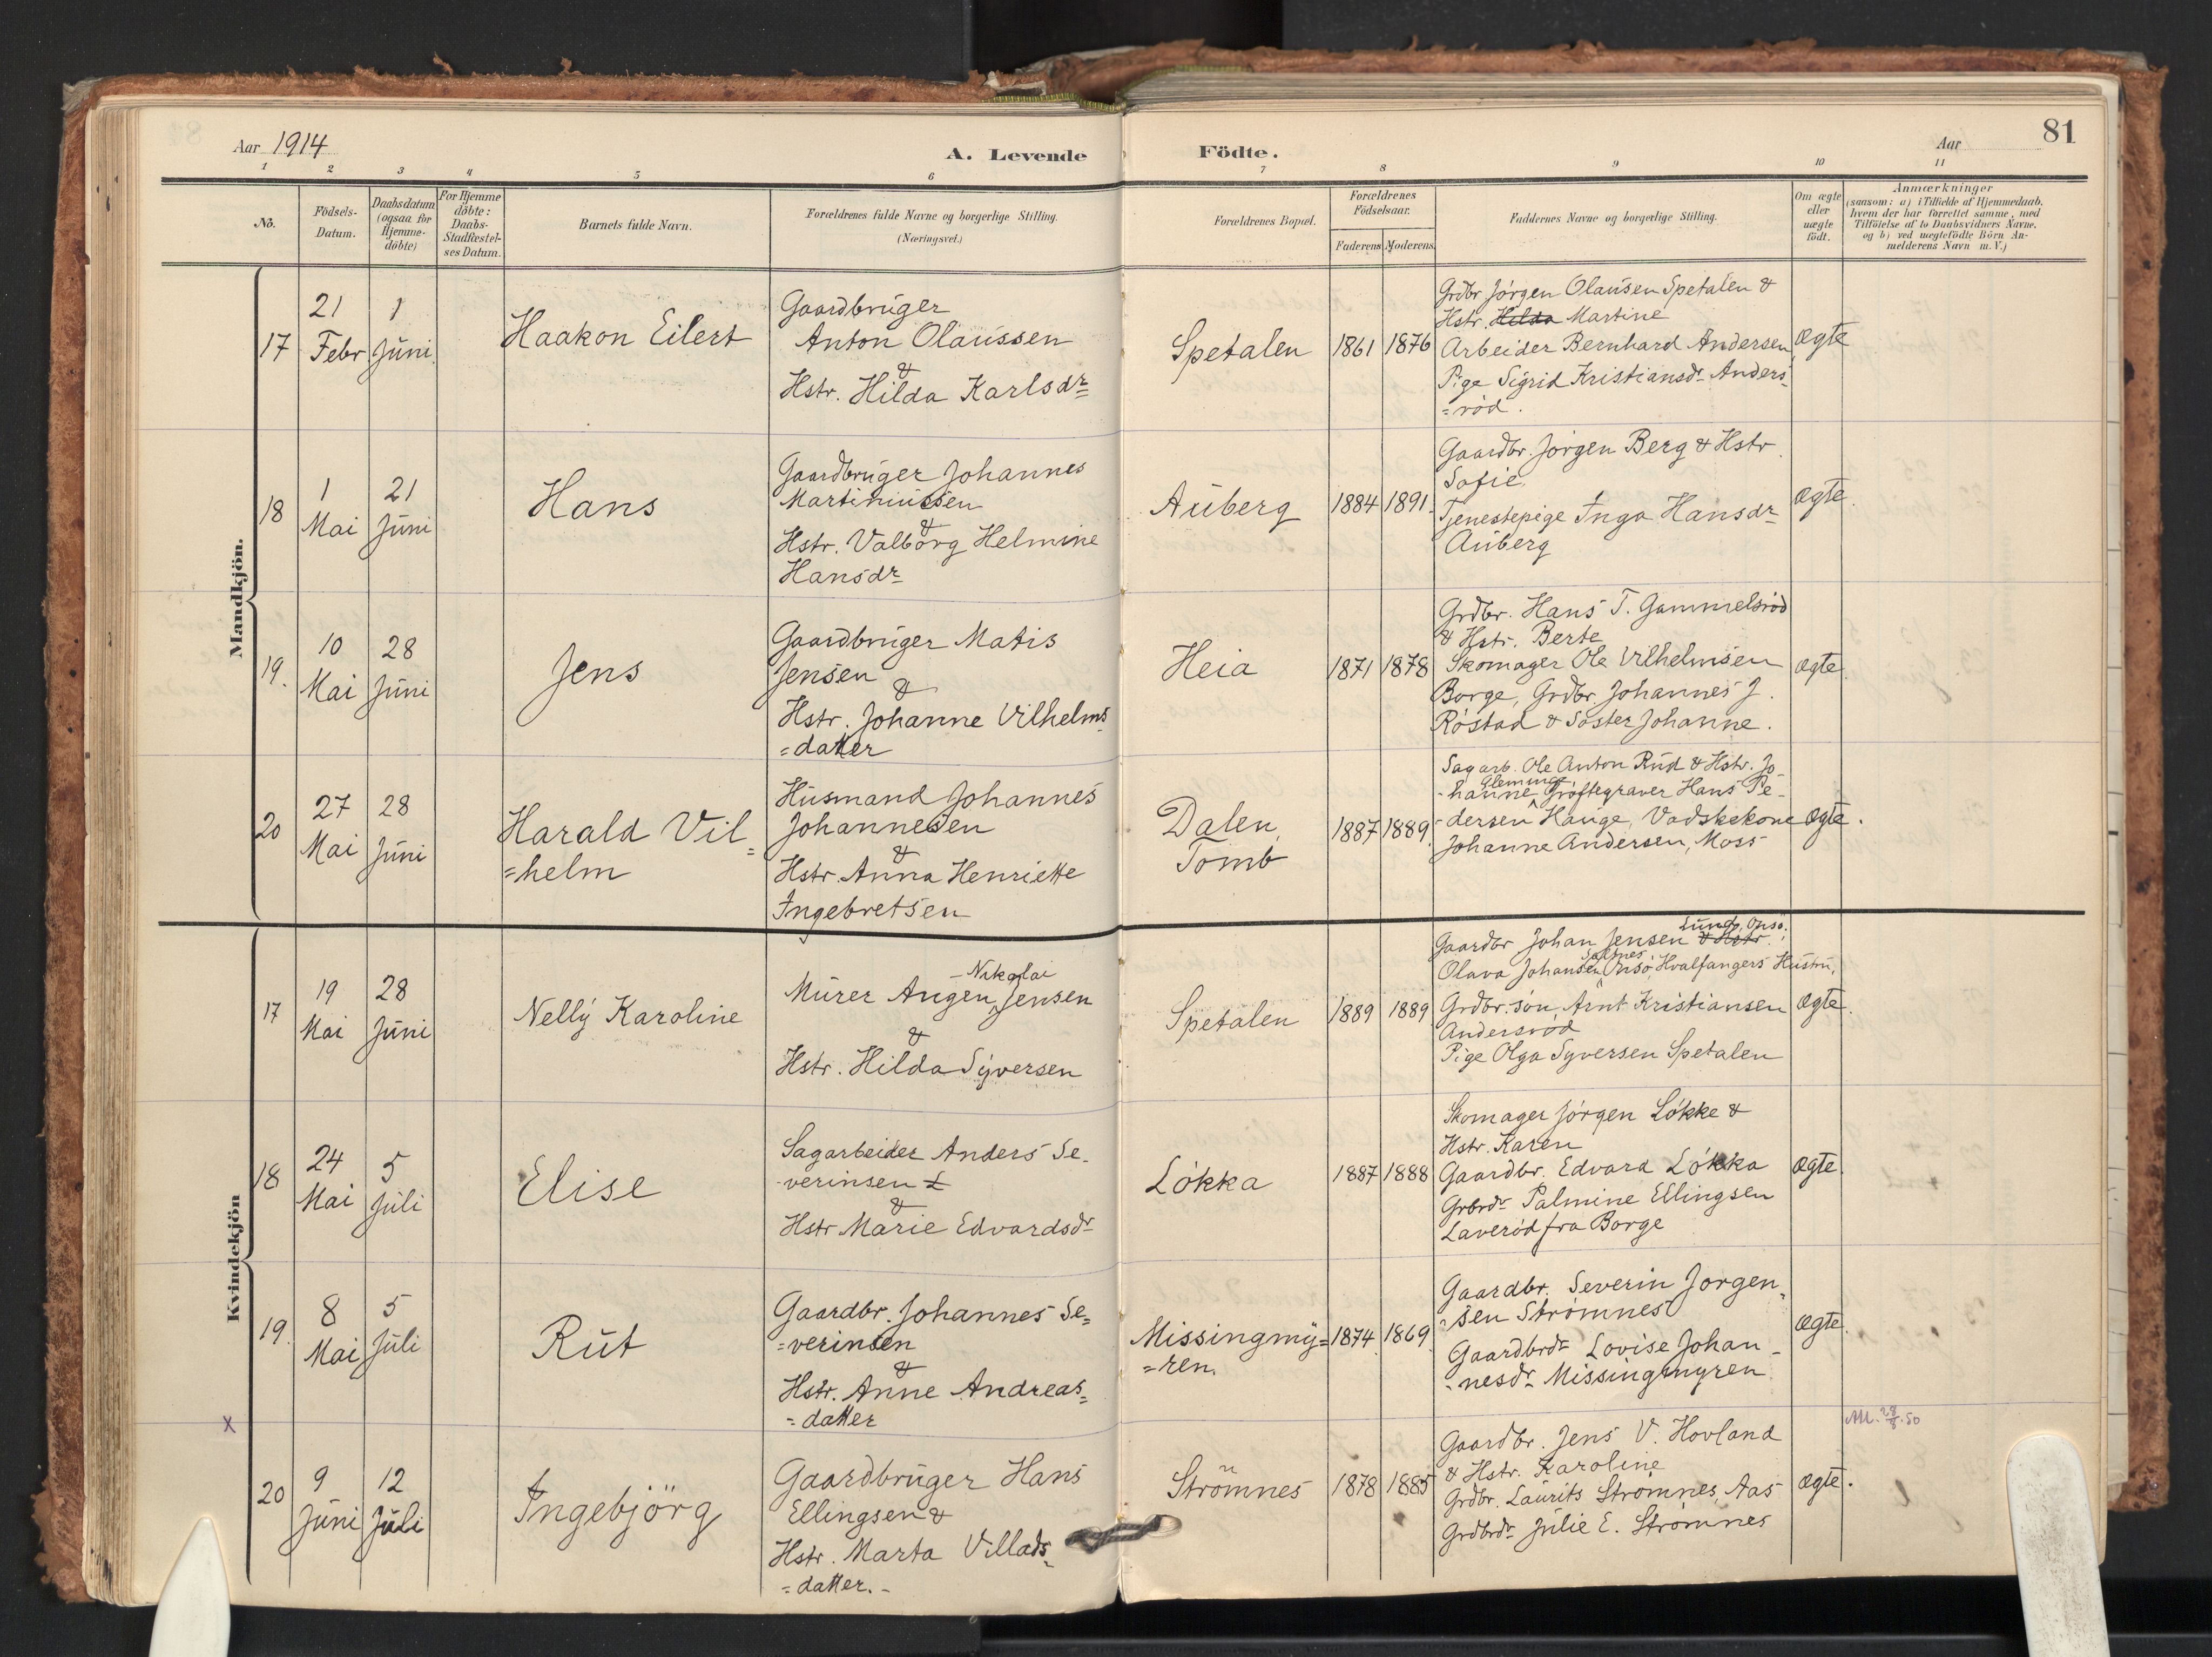 81
Aar 1914
A. Levende Födte.
Aar
1 2 3 4 5 6 7 8 9 10 11
No.
Födsels-Datum.
Daabsdatum (ogsaa for Hjemme-döbte)
For Hjemme döbte: Daabs-Stadfæstel-ses Datum.
Barnets fulde Navn.
Forældrenes fulde Navne og borgerlige Stilling.
(Næringsvei.)
Forældrenes Bopæl.
Forældrenes Födselsaar.
Faderens Moderens
Faddernes Navne og borgerlige Stilling.
Om ægte eller uægte födt.
Anmærkninger
(saasom: a) i Tilfælde af Hjemmedaab,
hvem der har forrettet samme, med
Tilföielse af to Daabsvidners Navne.
og b) ved uægtefödte Börn An-
melderens Navn m. V.)
Mandkjön.
17
21 Febr
1 Juni
Haakon Eilert
Gaardbruger
Anton Olaussen
&
Hstr. Hilda Karlsdr
Spetalen
1861 1876
Grdbr Jørgen Olausen Spetalen &
Hstr. Hilda Martine
Arbeider Bernhard Andersen
Pige Sigrid Kristiansdr Anders-
=rød.
Ægte
18
1 Mai
21 Juni
Hans
Gaardbruger Johannes
Martiniussen
&
Hstr. Valborg Helmine
Hansdr
Auberg
1884 1891
Gaardbr. Jørgen Berg & Hstr.
Sofie
Tjenestepige Inga Hansdr
Auberg
Ægte.
19.
10 Mai
28 Juni
Jens
Gaardbruger Matis
Jensen
&
Hstr. Johanne Vilhelms-
=datter
Heia
1871 1878
Grdbr. Hans T. Gammelsrød
& Hstr. Berte
Skomager Ole Vilhelmsen
Borge, Grdbr. Johannes J.
Røstad & Søster Johanne.
Ægte.
20
27 Mai
28 Juni
Harald Vil=
=helm
Husmand Johannes
Johannesen
&
Hstr. Anna Henriette
Ingebretsen
Dalen,
Tomb
1887 1889
Sagarb. Ole Anton Rud & Hstr. Jo-
Glemminge,
-hanne Grøftegraver Hans Pe-
-dersen Hauge, Vadskekone
Johanne Andersen, Moss
Ægte.
Kvindekjön
17
19 Mai
28 Juni
Nelly Karoline
Nikolai
Murer Angen Jensen
&
Hstr. Hilda Syversen
Spetalen
1889 1889
Lunde, Onsø.
Gaardbr Johan Jensen & Hstr.
Saltnes
Olava Johansen Onsø, Hvalfangers Hustru,
Grdbr.søn Arnt Kristiansen
Andersrød
Pige Olga Syversen Spetalen
Ægte.
18
24 Mai
5 Juli
Elise
Sagarbeider Anders Se-
-verinsen
&
Hstr Marie Edvardsdr
Løkka
1887 1888
Skomager Jørgen Løkke &
Hstr. Karen
Gaardbr. Edvard Løkka
Grbrdr Palmine Ellingsen
Laverød fra Borge
Ægte.
19.
8 Mai
5 Juli
Rut
Gaardbr. Johannes Se=
=verinsen
&
Hstr. Anne Andreas=
=datter
Missingmy=
=ren.
1874 1869
Gaardbr. Severin Jørgen-
-sen Strømnes
Gaardbrdr Lovise Johan-
-nesdr Missingmyren
Ægte.
x
20
9 Juni
12 Juli
Ingebjörg
Gaardbruger Hans
Ellingsen &
Hstr. Marta Villads=
=datter.-
Strömnes
1878 1885
Gaardbr. Jens V. Hovland
& Hstr. Karoline
Grdbr. Laurits Strømnes, Aas
Grdbrdr Julie E. Strømnes
Ægte.